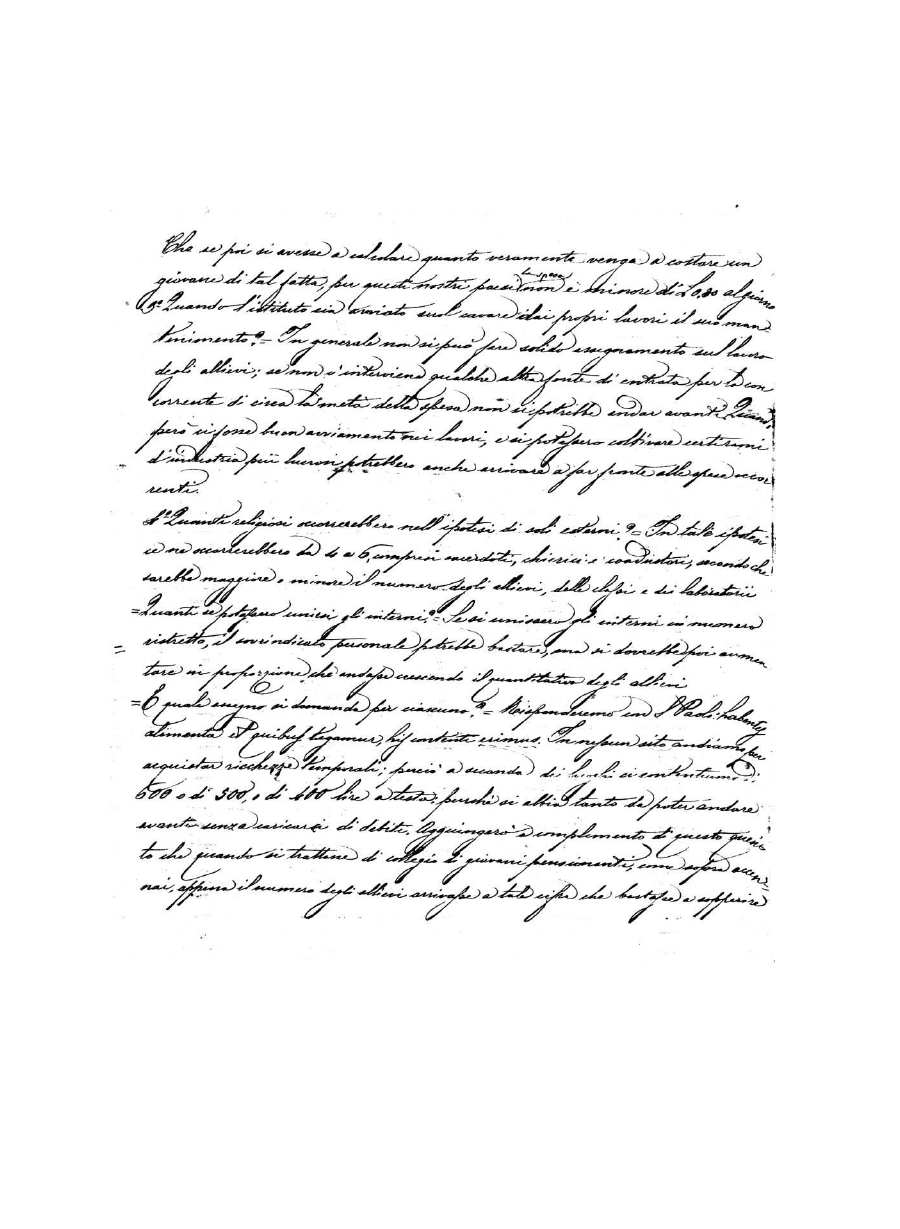 Che se poi si avesse a calcolare quanto veramente venga a costare un
giovane di tal fatta, per questi nostri paesi la spesa non è minore di L 0,80 al giorno
Quando l'istituto sia avviato sul cavare dai propri lavori il suo man=
tenimento? = In generale non si può fare solido assegnamento sul lavoro
degli allievi; se non v'interviene qualche altra fonte di entrata per la con
corrente di circa la metà della spesa non si potrebbe andar avanti. Quando
però vi fosse buon avviamento nei lavori, e si potessero coltivare certi rami
d'industria più lucrosi potrebbero anche arrivare a far fronte alle spese occor
renti.
Quanti religiosi occorrerebbero nell'ipotesi di soli esterni? = In tale ipotesi
ce ne occorrerebbero da 4 a 6, compresi sacerdoti, chierici e coadiutori, secondo che
sarebbe maggiore o minore il numero degli allievi, delle classi e dei laboratorii
= Quanti se potessero unirsi gli interni? = Se si unissero gli interni in numero
ristretto, il sovrindicato personale potrebbe bastare, ma si dovrebbe poi aumen
tare in proporzione che andasse crescendo il quantitativo degli allievi
= E quale assegno si domanda per ciascuno? = Risponderemo con S. Paolo: habentes
alimenta et quibus tegamur, his contenti erimus. In nessun sito andiamo per
acquistar ricchezze temporali; perciò a seconda dei luoghi ci contentiamo di
600 o di 500, o di 400 lire a testa; perchè si abbia tanto da poter andare
avanti senza caricarci di debiti. Aggiungerò a complimento di questo quesi
to che quando si trattasse di collegio di giovani pensionanti, come sopra accen=
nai, appena il numero degli allievi arrivasse a tale cifra che bastasse a sopperire